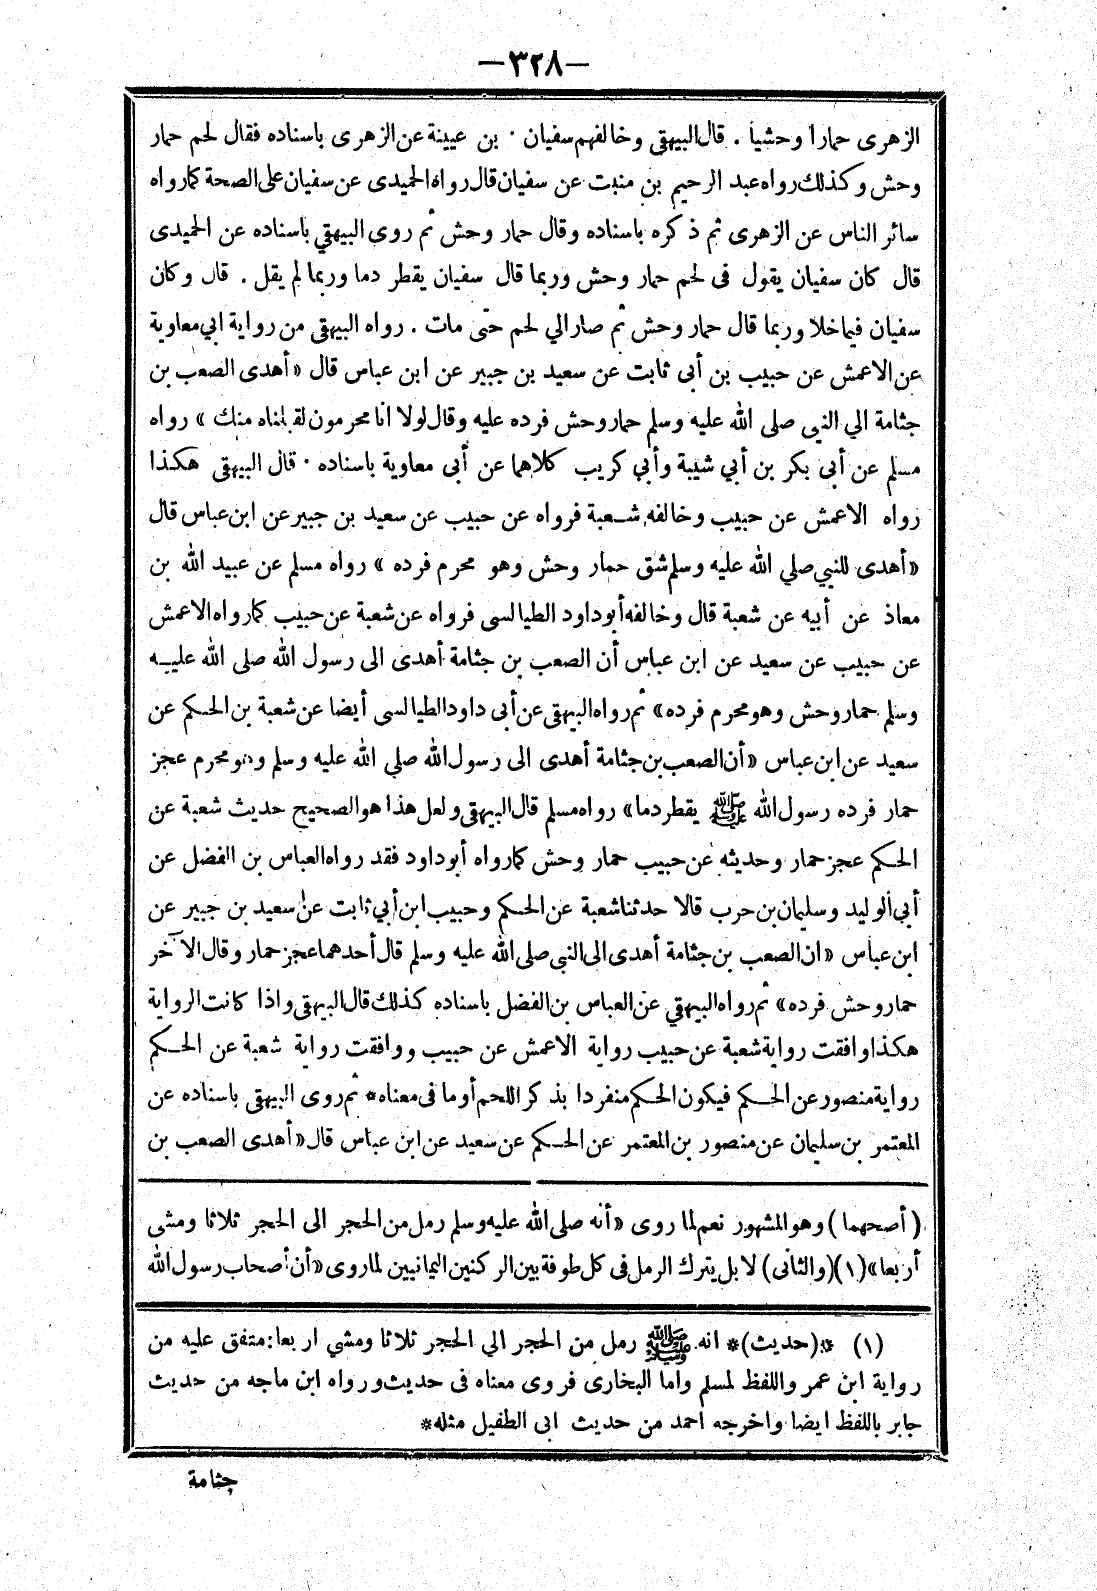 —٣٢٨—
الزهرى حمارا وحشيا . قال البيهقى وخالفهم سفيان . بن عيينة عن الزهرى باسناده فقال لحم حمار
وحش وكذلك رواه عبد الرحيم بن منبت عن سفيان قال رواه الحميدى عن سفيان على الصحة كما رواه
سائر الناس عن الزهرى ثم ذكره باسناده وقال حمار وحش ثم روى البيهقي باسناده عن الحميدى
قال كان سفيان يقول فى لحم حمار وحش وربما قال سفيان يقطر دما وربما لم يقل . قال وكان
سفيان فيما خلا وربما قال حمار وحش ثم صار الي لحم حتى مات . رواه البيهقى من رواية ابي معاوية
عن الاعمش عن حبيب بن أبى ثابت عن سعيد بن جبير عن ابن عباس قال «أهدى الصعب بن
جثامة الي النبى صلى الله عليه وسلم حمار وحش فرده عليه وقال لولا انا محرمون لقبلناه منك» رواه
مسلم عن أبى بكر بن أبي شيبة وأبي كريب كلاهما عن أبى معاوية باسناده . قال البيهقى هكذا
رواه الاعمش عن حبيب وخالفه شعبة فرواه عن حبيب عن سعيد بن جبير عن ابن عباس قال
«أهدى للنبي صلي الله عليه وسلم شق حمار وحش وهو محرم فرده» رواه مسلم عن عبيد الله بن
معاذ عن أبيه عن شعبة قال وخالفه أبو داود الطيالسى فرواه عن شعبة عن حبيب كما رواه الاعمش
عن حبيب عن سعيد عن ابن عباس أن الصعب بن جثامة أهدى الى رسول الله صلى الله عليه
وسلم حمار وحش وهو محرم فرده» ثم رواه البيهقى عن أبى داود الطيالسى أيضا عن شعبة بن الحكم عن
سعيد عن ابن عباس «أن الصعب بن جثامة أهدى الى رسول الله صلي الله عليه وسلم وهو محرم عجز
حمار فرده رسول الله ﷺ يقطر دما» رواه مسلم قال البيهقى ولعل هذا هو الصحيح حديث شعبة عن
الحكم عجز حمار وحديثه عن حبيب حمار وحش كما رواه أبو داود فقد رواه العباس بن الفضل عن
أبي الوليد وسليمان بن حرب قالا حدثنا شعبة عن الحكم وحبيب ابن أبي ثابت عن سعيد بن جبير عن
ابن عباس «ان الصعب بن جثامة أهدى الى النبى صلى الله عليه وسلم قال أحدهما عجز حمار وقال الآخر
حمار وحش فرده» ثم رواه البيهقي عن العباس بن الفضل باسناده كذلك قال البيهقى واذا كانت الرواية
هكذا وافقت رواية شعبة عن حبيب رواية الاعمش عن حبيب ووافقت رواية شعبة عن الحكم
رواية منصور عن الحكم فيكون الحكم منفردا بذكر اللحم أو ما فى معناه* ثم روى البيهقى باسناده عن
المعتمر بن سليمان عن منصور بن المعتمر عن الحكم عن سعيد عن ابن عباس قال «أهدى الصعب بن
(أصحهما) وهو المشهور نعم لما روى «أنه صلى الله عليه وسلم رمل من الحجر الى الحجر ثلاثا ومشى
أربعا» (١) (والثانى) لا بل يترك الرمل فى كل طوفة بين الركنين اليمانيين لما روى «أن أصحاب رسول الله
(١) *(حديث)* انه ﷺ رمل من الحجر الي الحجر ثلاثا ومشي اربعا: متفق عليه من
رواية ابن عمر واللفظ لمسلم واما البخارى فروى معناه فى حديث ورواه ابن ماجه من حديث
جابر باللفظ ايضا واخرجه احمد من حديث ابى الطفيل مثله*
جثامة